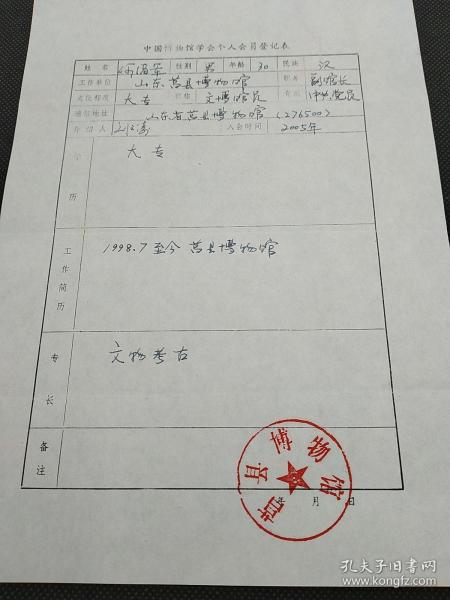 中国博物馆学会个人会员登记表
姓名 性别 男 年龄 30 民族 汉
工作单位 山东莒县博物馆 职务 副馆长
文化程度 大专 职称 文博馆员 中共党员
通信地址 山东省莒县博物馆 (276500)
介绍人 入会时间 2005年
学历 大专
工作简历 1998.7至今 莒县博物馆
专长 文物考古
备注
莒县博物馆
年 月 日
孔夫子旧书网
www.kongfz.com